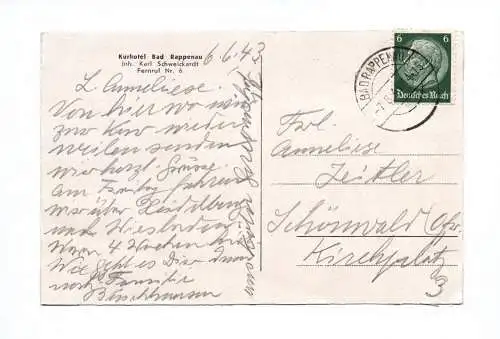 Kurhotel Bad Rappenau
Inh. Karl Schweickardt
Fernruf Nr. 6
6.6.43
L. Anneliese.
Von hier wo wir
zur Kur wieder
weilen senden
wir herzl. Grüsse.
Am Freitag fahren
wir über Heidelberg
nach Wiesbaden
4 Wochen
Wie geht es Dir denn
noch? Familie
6 6
Deutsches Reich
BAD RAPPENAU
Frl.
Anneliese
Zeitler
Schönwald Ofr.
Kirchplatz
3